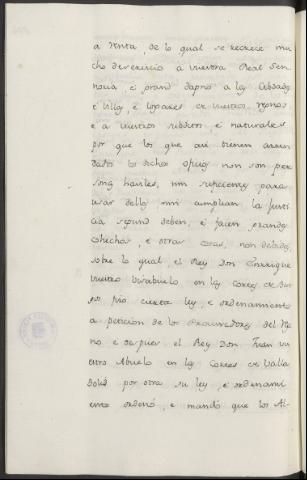 a renta, de lo qual se recrece mu
cho deservicio a vuestra Real Sen
noria, e grand dapno a las Cibdades
e Villas, e logares de vuestros regnos
e a vuestros subditos, e naturales
por que los que asi tienen arren
dados los dichos oficios non son per
sonas habiles, nin suficientes para
usar dellos nin cumplian la Justi
cia segund deben, e facen grandes
cohechos, e otras cosas, non debidas,
sobre lo qual, el Rey Don Enrrique
vuestro Visabuelo, en las Cortes de Bur
gos fizo cierta ley, e ordenamiento
a peticion de los Procuradores del Reg
no e despues el Rey Don Juan vu
estro Abuelo en las Cortes de Valla
dolid por otra su ley, e ordenami
ento ordenó, e mandó que los Al-